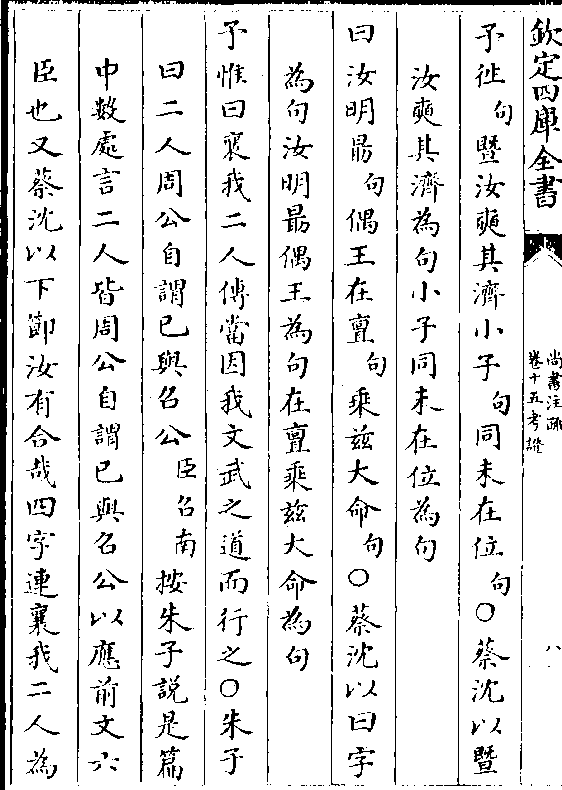 欽定四庫全書
尚書注疏
卷十五考證
八
予徃句暨汝奭其濟小子句同未在位句○蔡沈以暨
汝奭其濟為句小子同未在位為句
曰汝明勗句偶王在亶句乘茲大命句○蔡沈以曰字
為句汝明勗偶王為句在亶乘茲大命為句
予惟曰襄我二人傳當因我文武之道而行之○朱子
曰二人周公自謂已與召公臣召南按朱子說是篇
中數處言二人皆周公自謂已與召公以應前文六
臣也又蔡沈以下節汝有合哉四字連襄我二人為